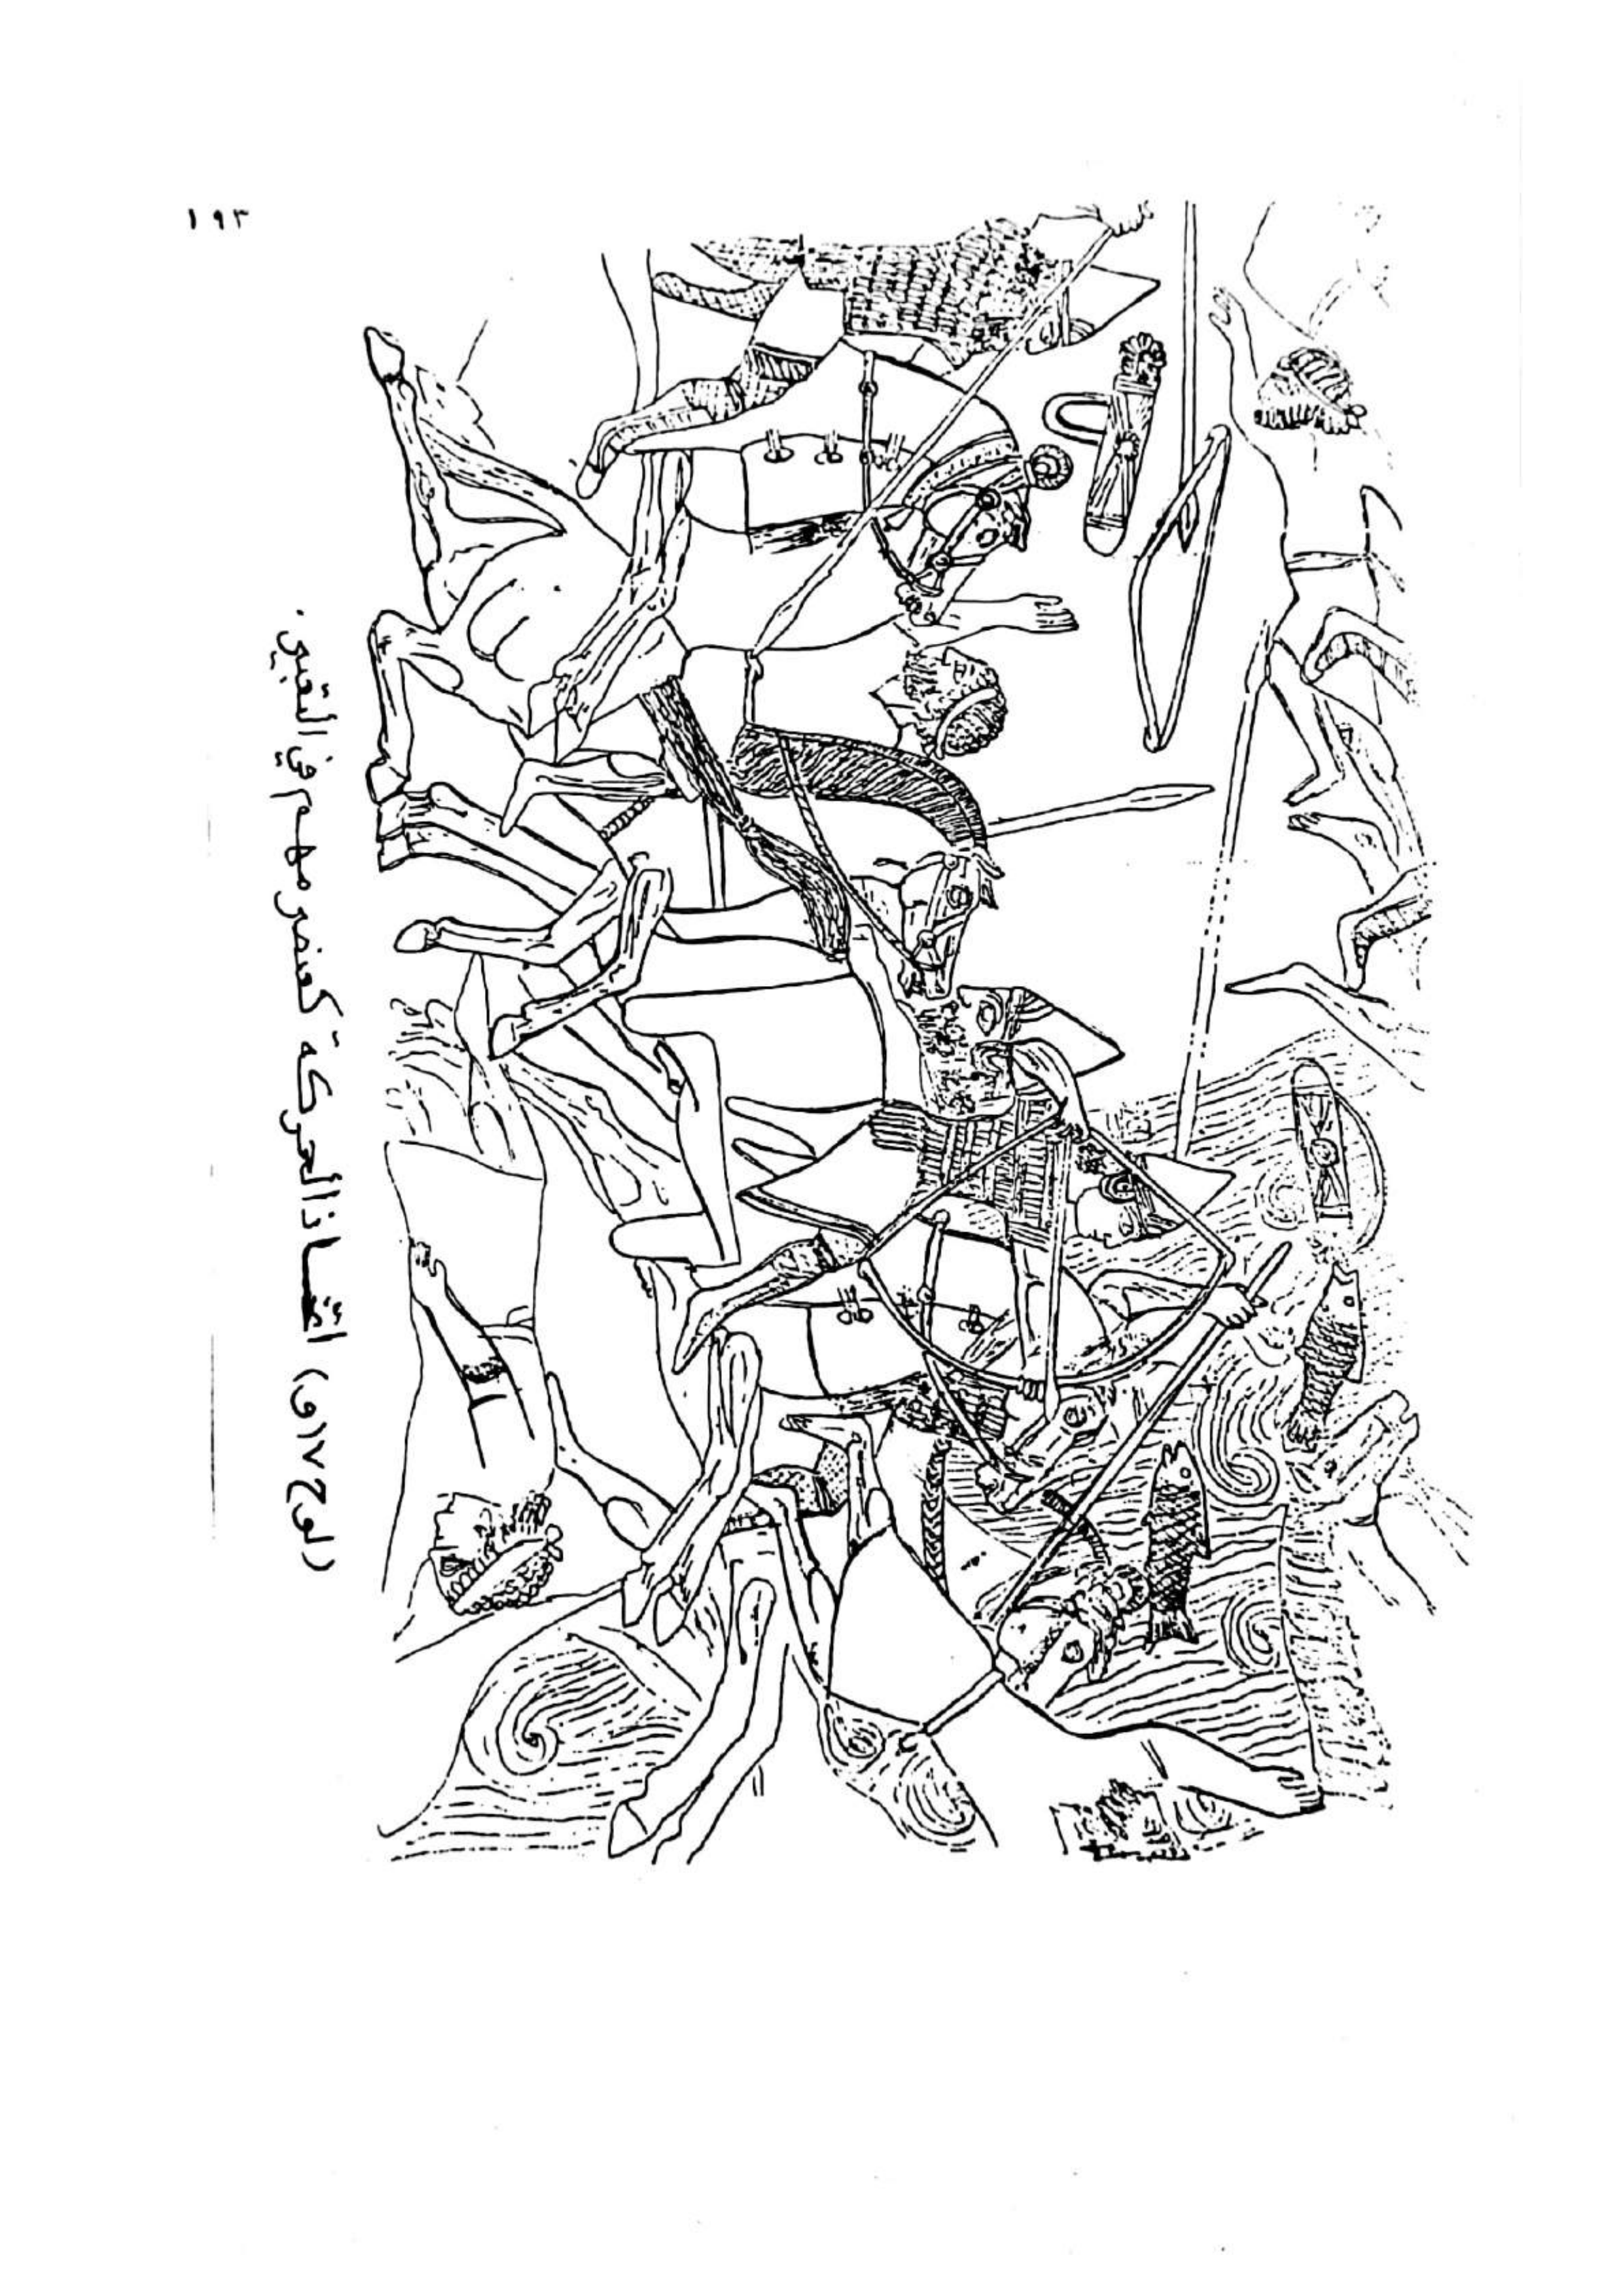 ١٩٣
(لوح ١٧و) اتخاذ الحركة كعنصر مهم في التعبير.